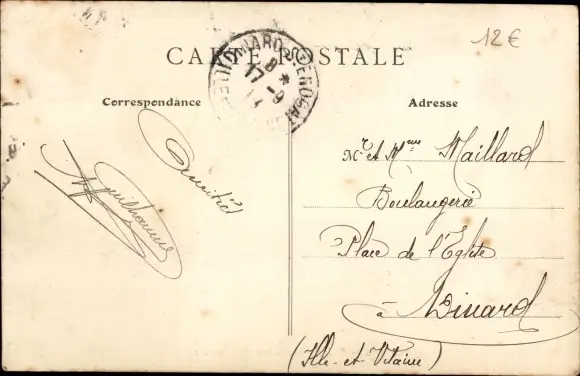 12 €
CARTE POSTALE
DINARD-ST-ENOGAT
8 *
17-9
11
Correspondance
Adresse
Amitiés
Guilhaume
Mr et Mme Maillard
Boulangerie
Place de l'Eglise
à Dinard
(Ille-et-Vilaine)